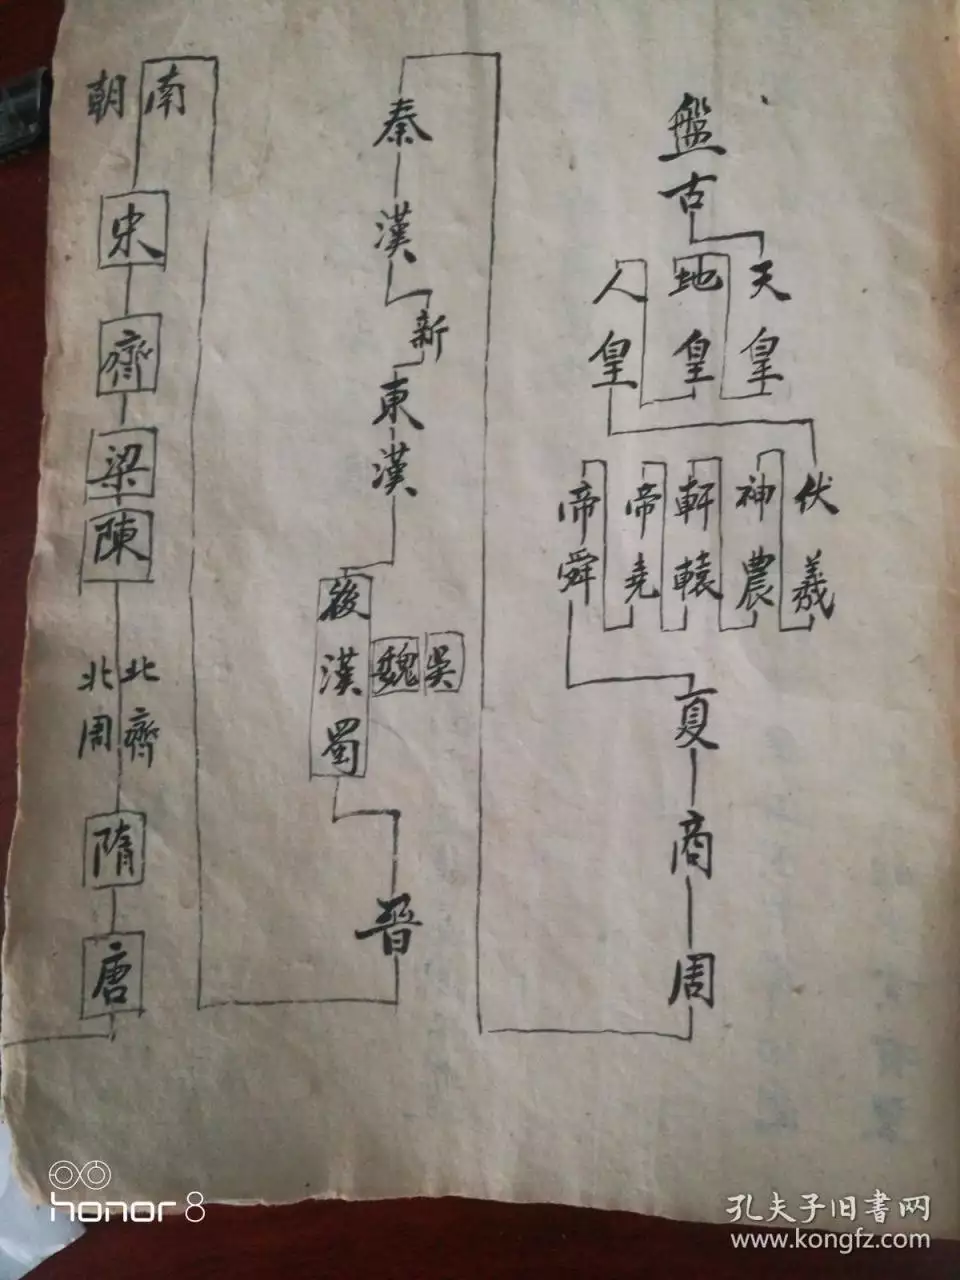 盤古
天皇
地皇
人皇
伏羲
神農
軒轅
帝堯
帝舜
夏
商
周
秦
漢
新
東漢
後漢蜀
魏
吳
晉
南朝
宋
齊
梁
陳
北齊
北周
隋
唐
honor 8
孔夫子旧书网
www.kongfz.com